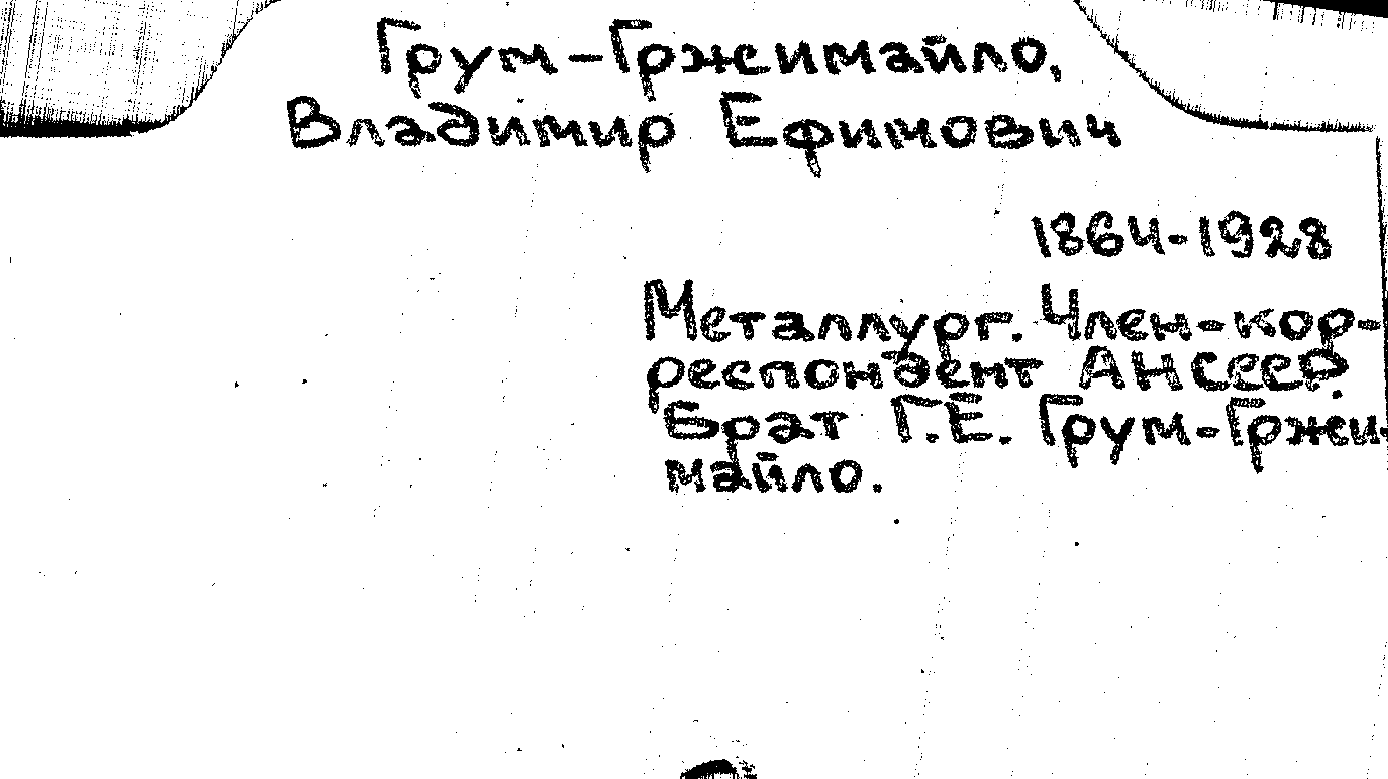 Грум-Гржимайло,
Владимир Ефимович
1864-1928
Металлург. Член-кор-
респондент АН СССР.
Брат Г.Е. Грум-Гржи-
майло.